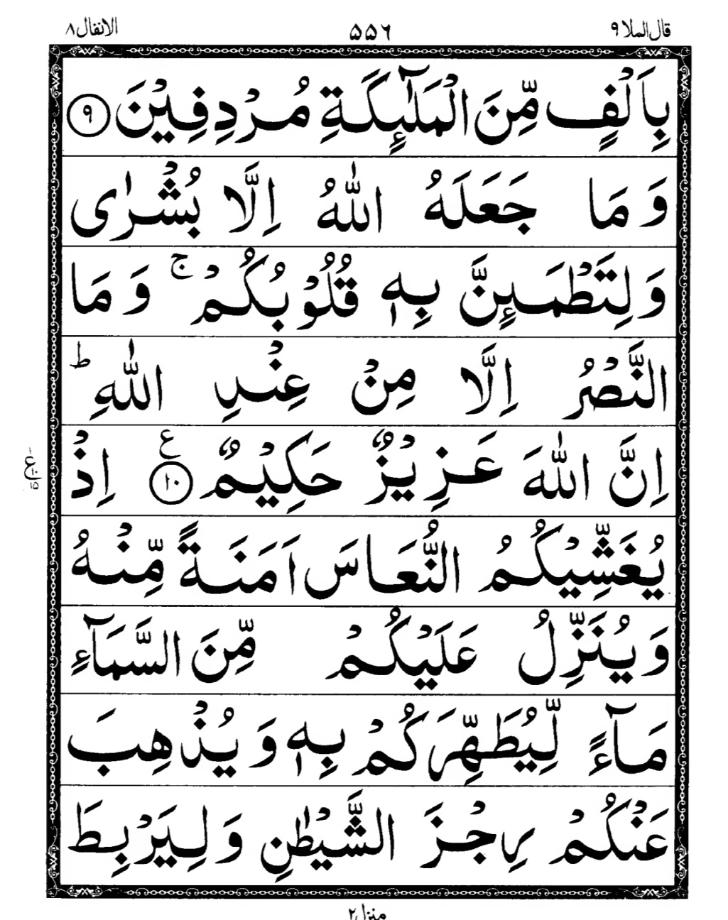 قال الملا ۹ ۵۵۶ الانفال ۸
بِاَلْفٍ مِّنَ الْمَلٰٓئِكَةِ مُرْدِفِيْنَ ۹
وَ مَا جَعَلَهُ اللّٰهُ اِلَّا بُشْرٰى
وَلِتَطْمَئِنَّ بِهٖ قُلُوْبُكُمْ ۚ وَ مَا
النَّصْرُ اِلَّا مِنْ عِنْدِ اللّٰهِ ؕ
اِنَّ اللّٰهَ عَزِيْزٌ حَكِيْمٌ ۱۰ ع اِذْ
يُغَشِّيْكُمُ النُّعَاسَ اَمَنَةً مِّنْهُ
وَيُنَزِّلُ عَلَيْكُمْ مِّنَ السَّمَآءِ
مَآءً لِّيُطَهِّرَكُمْ بِهٖ وَ يُذْهِبَ
عَنْكُمْ رِجْزَ الشَّيْطٰنِ وَ لِيَرْبِطَ
منزل ۲